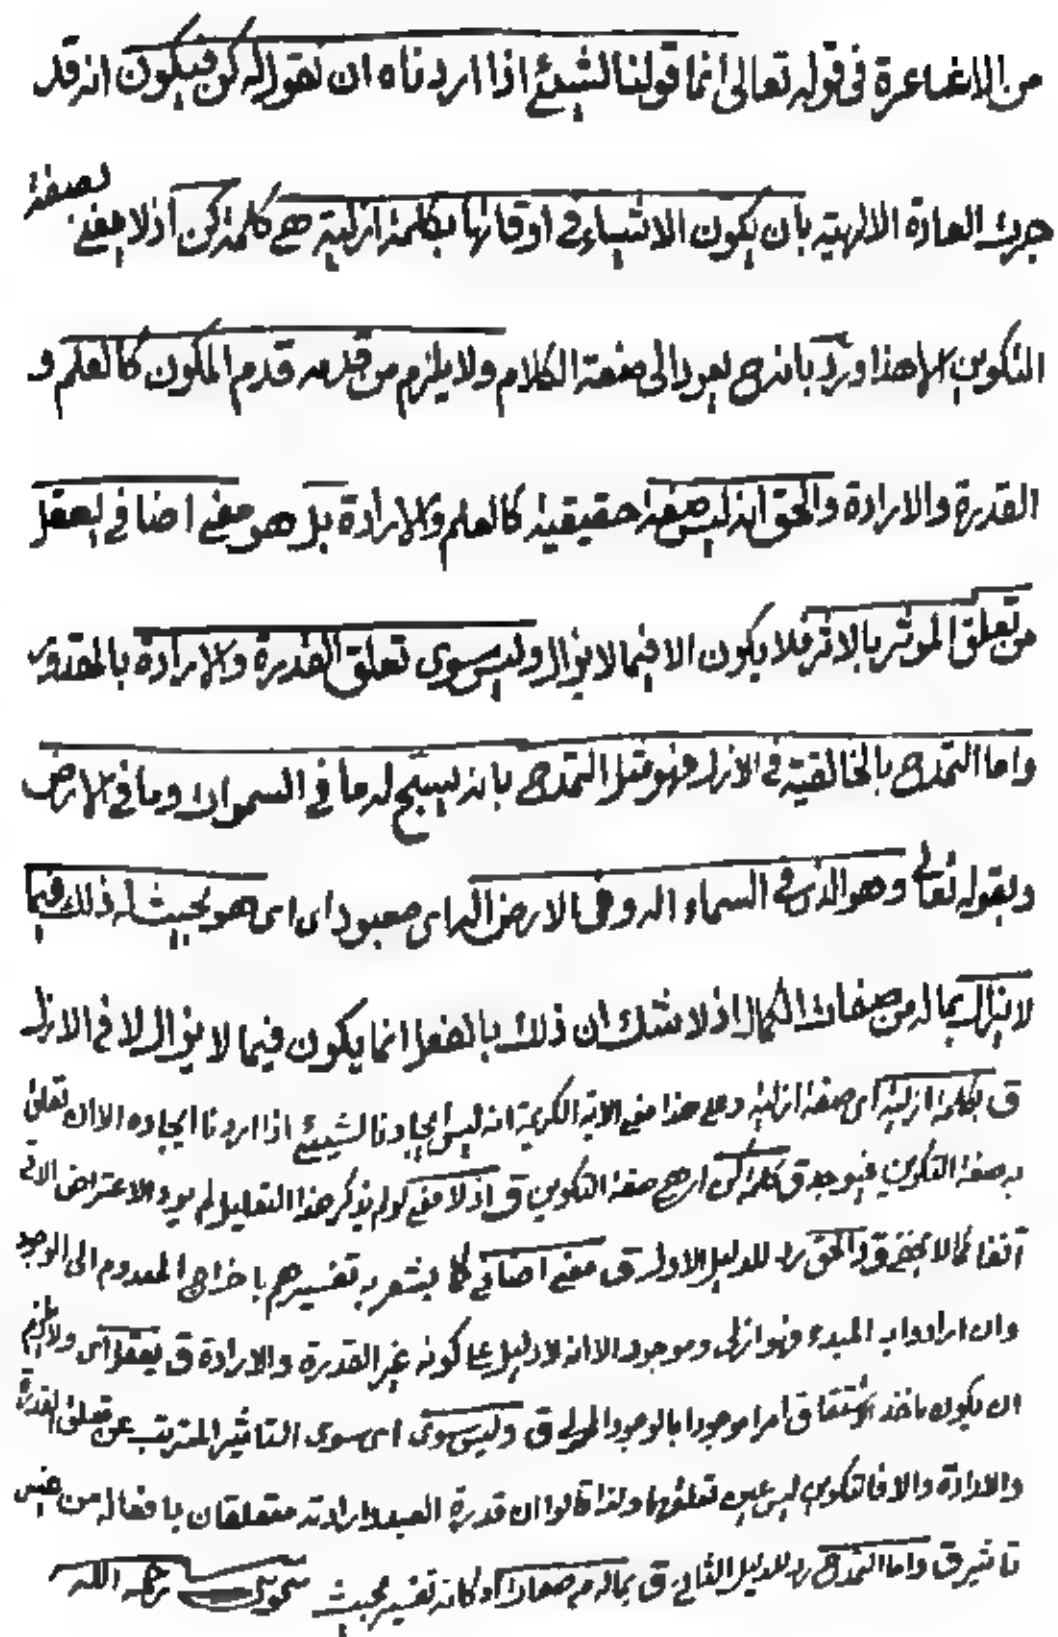 من الاشاعرة في قوله تعالى انما قولنا لشيئ اذا اردناه ان نقول له كن فيكون انه قد
جرت العادة الالهية بان يكون الاشياء في اوقاتها بكلمة ازلية هي كلمة كن اذ لا معنى لصفة
التكوين الا هذا ورد بانه ح يعود الى صفة الكلام ولا يلزم من قدمه قدم المكون كالعلم و
القدرة والارادة والحق انه ليس صفة حقيقية كالعلم والارادة بل هو معنى اضافي يعقل
من تعلق المؤثر بالاثر فلا يكون الا فيما لا يزال وليس سوى تعلق القدرة والارادة بالمقدور
واما التمدح بالخالقية في الازل فهو مثل التمدح بانه يسبح له ما في السموات وما في الارض
وبقوله تعالى وهو الذي في السماء اله وفي الارض اله اى معبود اى اى هو بحيث له ذلك فيما
لا يزال بماله من صفات الكمال اذ لا شك ان ذلك بالفعل انما يكون فيما لا يزال لا في الازل
ق بكلمة ازلية اى صفة ازلية وعلى هذا معنى الاية الكريمة انه ليس ايجادنا لشيئ اذا اردنا ايجاده الا ان تعلق
به صفة التكوين فيوجد ق كلمة كن اى هي صفة التكوين ق اذ لا معنى لو لم يذكر هذا التعليل لم يرد الاعتراض الاتى
آنفا كما لا يخفى ق والحق رد للدليل الاول ق معنى اضافي كما يشعر به تفسيرهم باخراج المعدوم الى الوجود
وان ارادوا به المبدء فهو ازلى وموجود الا انه لا دليل على كونه غير القدرة والارادة ق يعقل اى ولا يلزم
ان يكون ماخذ الاشتقاق امرا موجودا بالوجود ق وليس سوى اى سوى التاثير المترتب عن تعلق القدرة
والارادة والا فالتكوين ليس عين تعلقهما ولذا قالوا ان قدرة العبد وارادته متعلقان بافعاله من جنس
تاثير ق واما التمدح رد للدليل الثاني ق بماله من صفات اه كانه تفسير بحيث رحمه الله